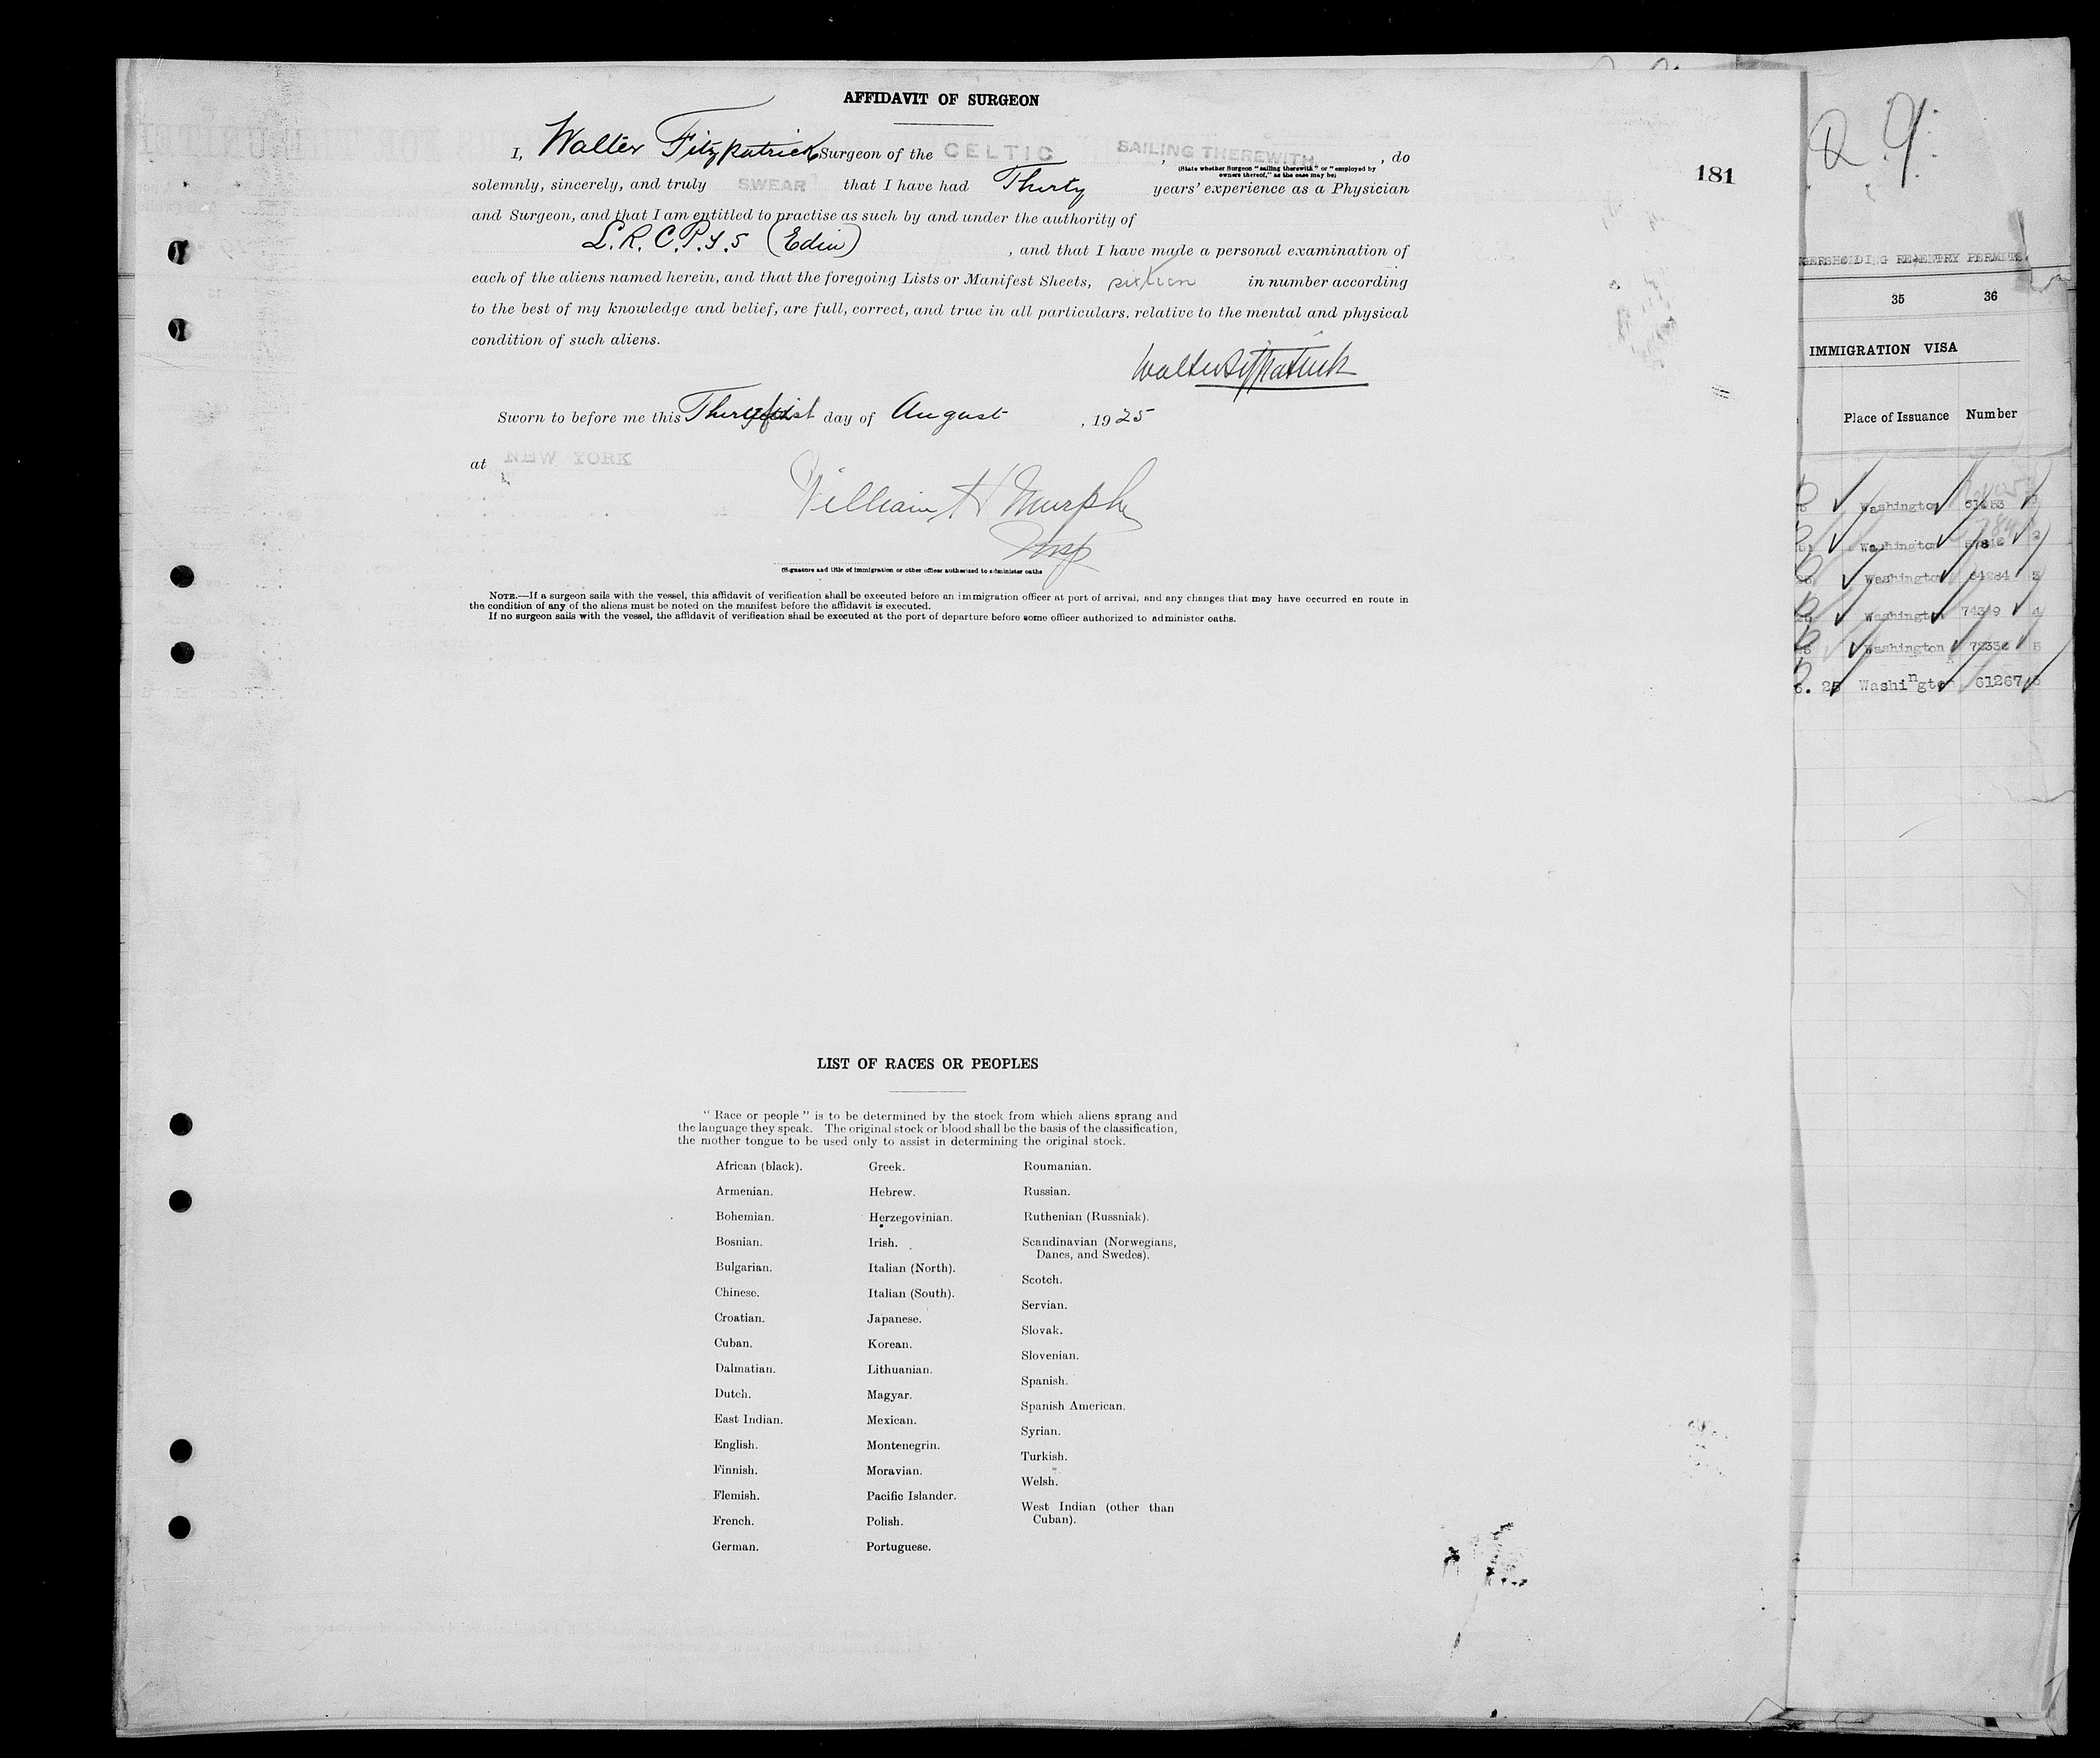 AFFIDAVIT OF SURGEON
I, Walter Fitzpatrick Surgeon of the CELTIC , SAILING THEREWITH , do
(State whether Surgeon "sailing therewith" or "employed by
owners thereof," as the case may be)
solemnly, sincerely, and truly SWEAR that I have had Thirty years' experience as a Physician
and Surgeon, and that I am entitled to practise as such by and under the authority of
L.R.C.P.&S (Edin) , and that I have made a personal examination of
each of the aliens named herein, and that the foregoing Lists or Manifest Sheets, sixteen in number according
to the best of my knowledge and belief, are full, correct, and true in all particulars. relative to the mental and physical
condition of such aliens.
Walter Fitzpatrick
Sworn to before me this day of August , 1925
at NEW YORK
William H Murphy
Insp
(Signature and title of immigration or other officer authorized to administer oaths
NOTE.—If a surgeon sails with the vessel, this affidavit of verification shall be executed before an immigration officer at port of arrival, and any changes that may have occurred en route in
the condition of any of the aliens must be noted on the manifest before the affidavit is executed.
If no surgeon sails with the vessel, the affidavit of verification shall be executed at the port of departure before some officer authorized to administer oaths.
181
LIST OF RACES OR PEOPLES
" Race or people " is to be determined by the stock from which aliens sprang and
the language they speak. The original stock or blood shall be the basis of the classification,
the mother tongue to be used only to assist in determining the original stock.
African (black).
Armenian.
Bohemian.
Bosnian.
Bulgarian.
Chinese.
Croatian.
Cuban.
Dalmatian.
Dutch.
East Indian.
English.
Finnish.
Flemish.
French.
German.
Greek.
Hebrew.
Herzegovinian.
Irish.
Italian (North).
Italian (South).
Japanese.
Korean.
Lithuanian.
Magyar.
Mexican.
Montenegrin.
Moravian.
Pacific Islander.
Polish.
Portuguese.
Roumanian.
Russian.
Ruthenian (Russniak).
Scandinavian (Norwegians,
Danes, and Swedes).
Scotch.
Servian.
Slovak.
Slovenian.
Spanish.
Spanish American.
Syrian.
Turkish.
Welsh.
West Indian (other than
Cuban).
PERMITS
35 36
IMMIGRATION VISA
Place of Issuance Number
Washington
Washington
Washington 64284 3
Washington 4
Washington 5
25 Washington 61267